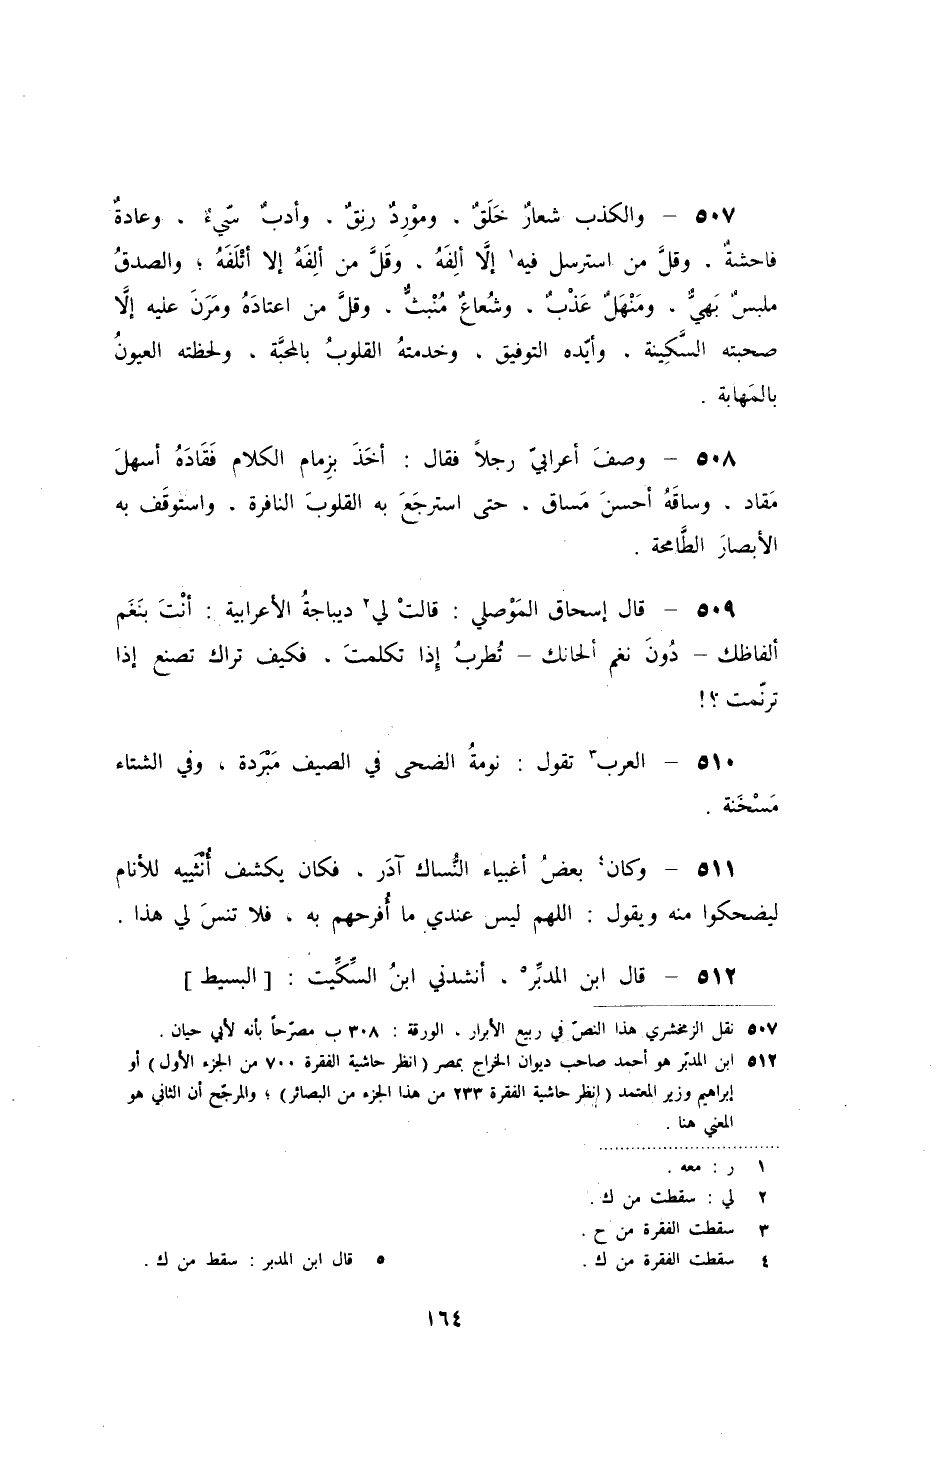 ٥٠٧ – والكذب شعارٌ خَلَقٌ ، وموْرِدٌ رنِقٌ ، وأدبٌ سّيءٌ ، وعادةٌ
فاحشةٌ . وقلَّ من استرسل فيه١ إلَّا ألِفَهُ ، وقَلَّ من ألِفَهُ إلا أتْلَفَهُ ؛ والصدقُ
ملبسٌ بَهيٌّ ، ومَنْهَلٌ عَذْبٌ ، وشُعاعٌ مُنْبثٌّ ، وقلَّ من اعتادَهُ ومَرَنَ عليه إلَّا
صحبته السَّكِينة ، وأيّده التوفيق ، وخدمتهُ القلوبُ بالمحبَّة ، ولحظته العيونُ
بالمَهابة .
٥٠٨ – وصفَ أعرابيّ رجلاً فقال : أخَذَ بزِمام الكلام فَقَادَهُ أسهلَ
مَقاد ، وساقَهُ أحسنَ مَساق ، حتى استرجَعَ به القلوبَ النافرة ، واستوقَف به
الأبصارَ الطَّامحة .
٥٠٩ – قال إسحاق المَوْصلي : قالتْ لي٢ ديباجةُ الأعرابية : أنْتَ بنَغَم
ألفاظك – دُونَ نغم ألحانك – تُطربُ إذا تكلمتَ ، فكيف تراك تصنع إذا
ترنّمت ؟!
٥١٠ – العرب٣ تقول : نومةُ الضحى في الصيف مَبْرَدة ، وفي الشتاء
مَسْخَنة .
٥١١ – وكان٤ بعضُ أغبياء النُّساك آدَر ، فكان يكشف أُنْثَييه للأنام
ليضحكوا منه ويقول : اللهم ليس عندي ما أُفرحهم به ، فلا تنسَ لي هذا .
٥١٢ – قال ابن المدبِّر٥ ، أنشدني ابنُ السِّكِّيت : [ البسيط ]
٥٠٧ نقل الزمخشري هذا النصّ في ربيع الأبرار ، الورقة : ٣٠٨ ب مصرّحاً بأنه لأبي حيان .
٥١٢ ابن المدبّر هو أحمد صاحب ديوان الخراج بمصر ( انظر حاشية الفقرة ٧٠٠ من الجزء الأول ) أو
إبراهيم وزير المعتمد ( إنظر حاشية الفقرة ٢٣٣ من هذا الجزء من البصائر ) ؛ والمرجّح أن الثاني هو
المعني هنا .
١ ر : معه .
٢ لي : سقطت من ك .
٣ سقطت الفقرة من ح .
٤ سقطت الفقرة من ك . ٥ قال ابن المدبر : سقط من ك .
١٦٤